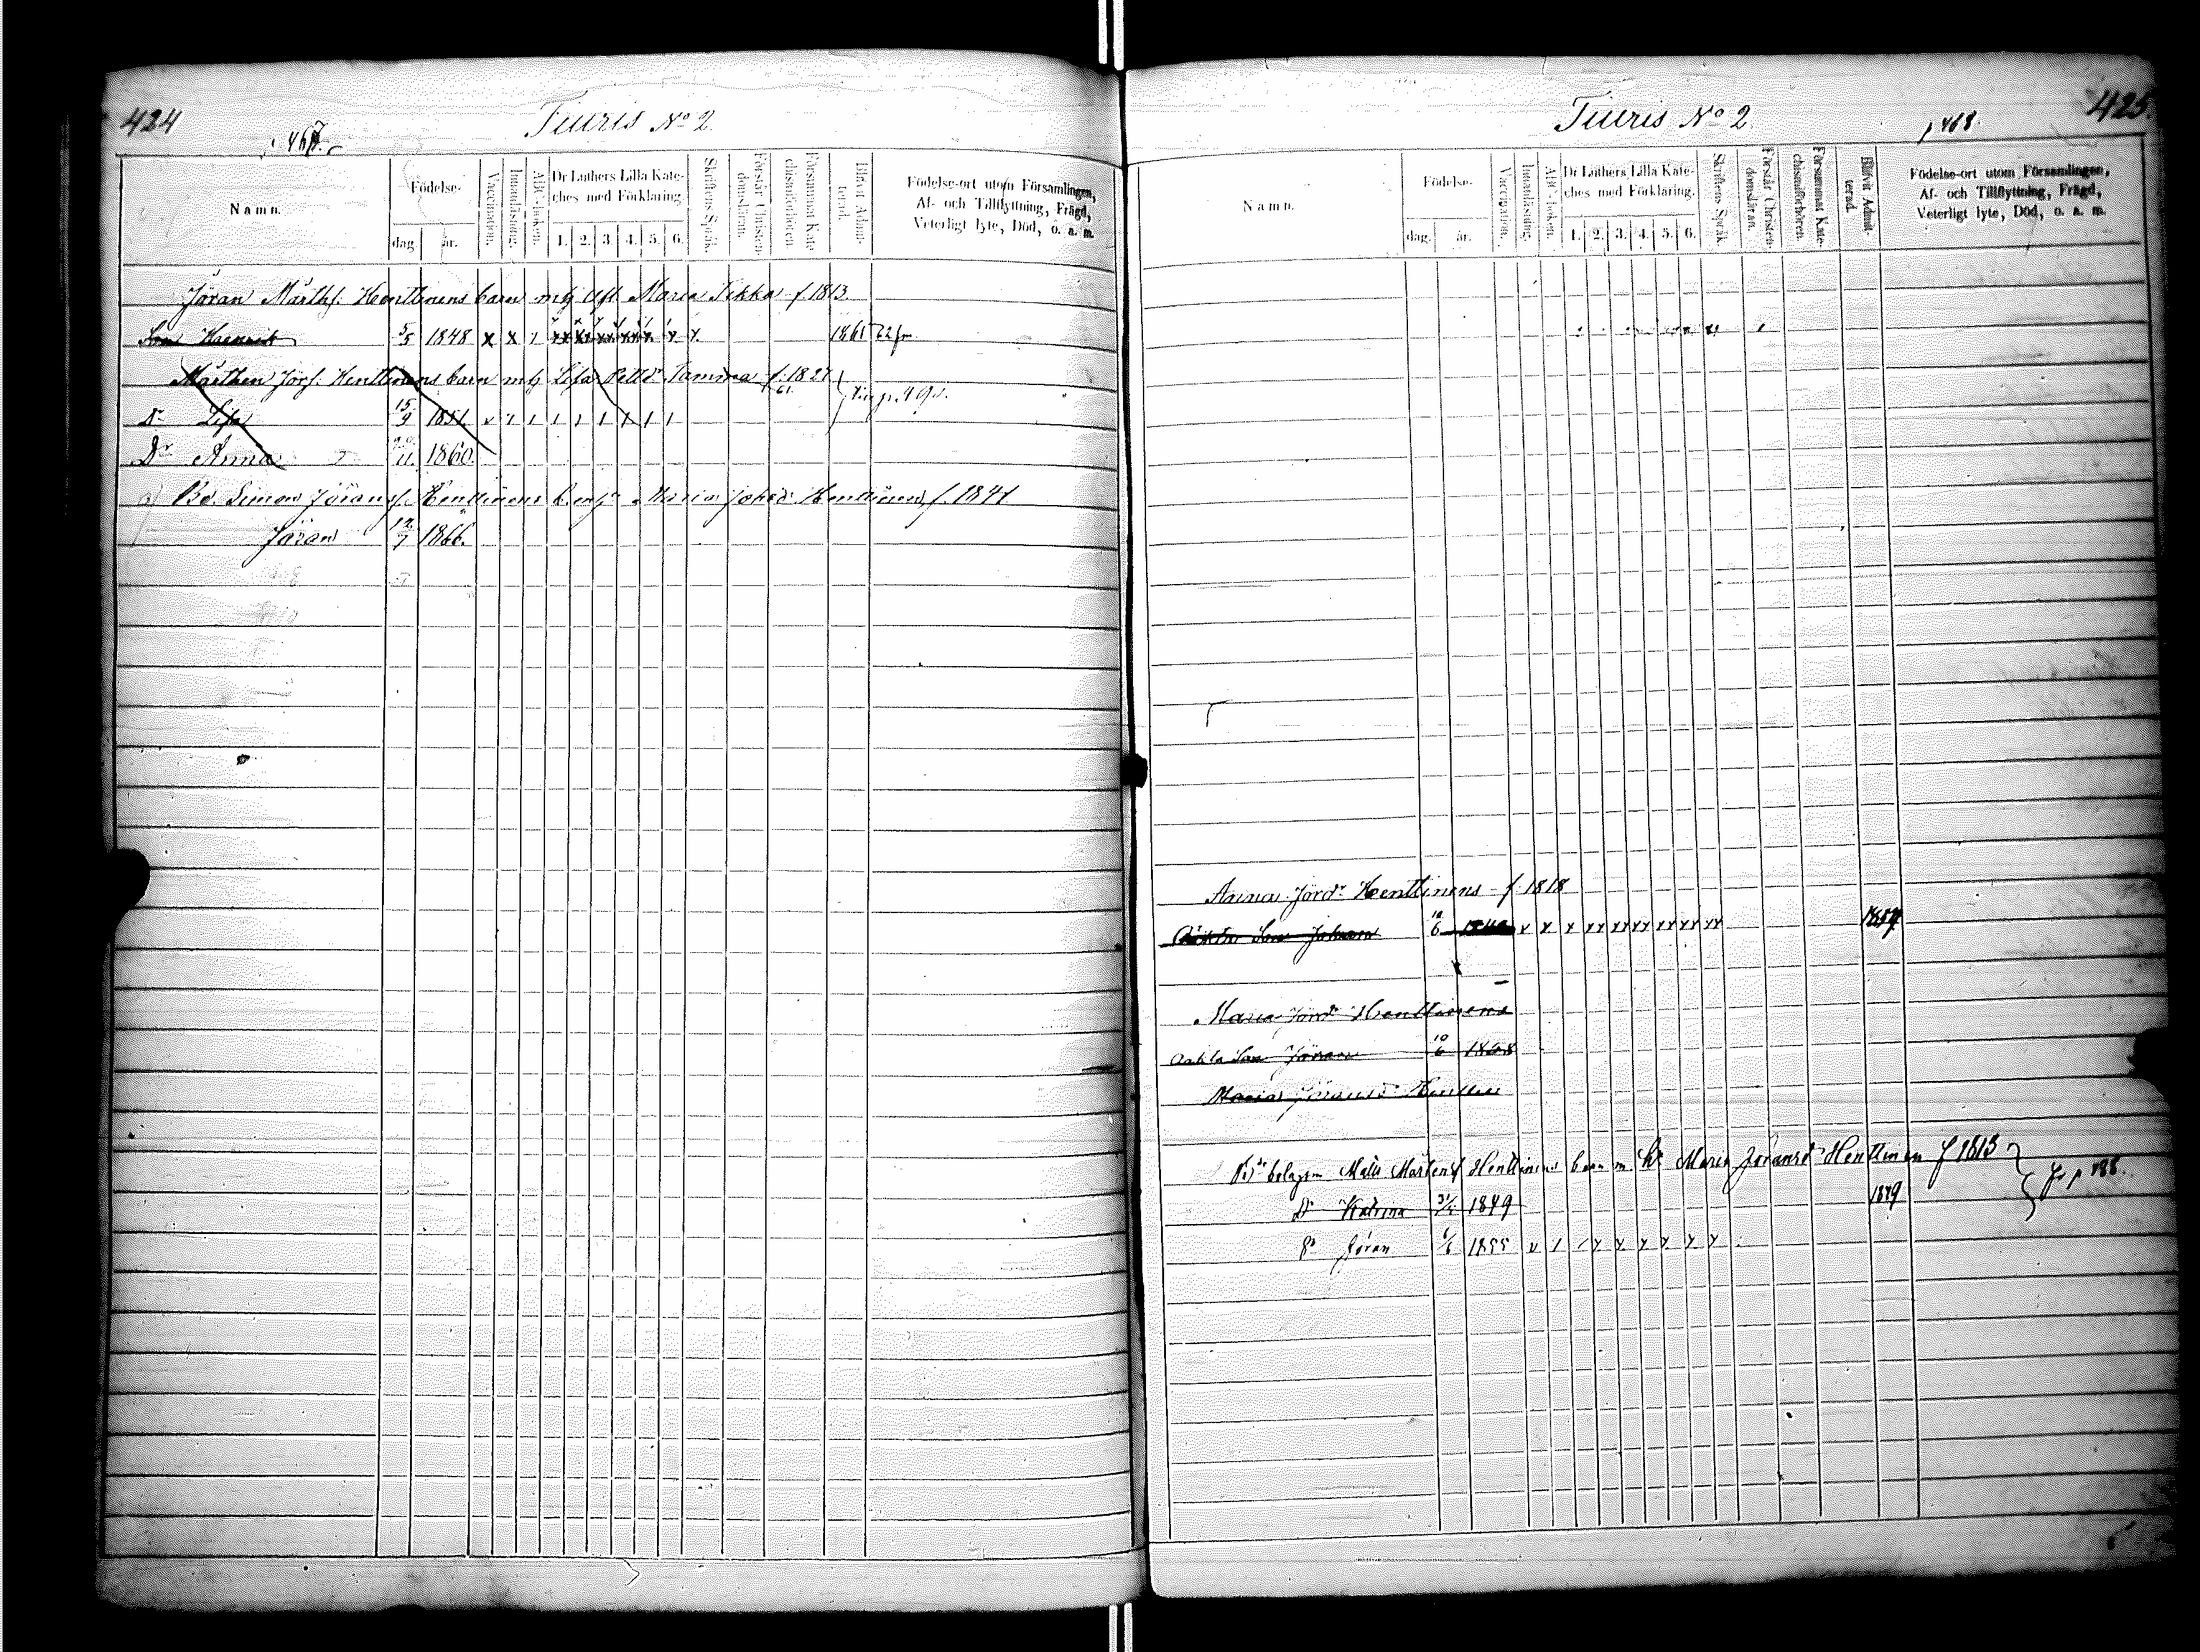 424
Tiuris No 2
p. 467.
Namn.
Födelse-
dag.
år.
Vaccination.
Innanläsning.
ABC-boken.
Dr Luthers Lilla Kate-
ches med Förklaring.
1. 2. 3. 4. 5. 6.
Skriftens Språk.
Förstår Christen-
domsläran.
Försummat Kate-
chismiförhören.
Blifvit Admit-
terad.
Födelse-ort utom Församlingen,
Af- och Tillflyttning, Frägd,
Veterligt lyte, Död, o. a. m.
Jöran Mårths. Henttinens barn m h Maria Tikka f 1813
Son Henrik 5/5 1848 x x 1861
Mårthen Jörs. Henttinens barn m h Lisa Tamma f. 1827
Dr Lisa 15/9 1851
p. 490.
Dr Anna 11 1860.
Bo. Simon Jörans. Henttinens b. m h Maria Henttinen f. 1841
Jöran 12/7 1866.
425.
Tiuris No 2.
p 468
Namn.
Födelse-
dag.
år.
Vaccination.
Innanläsning.
ABC-boken.
Dr Luthers Lilla Kate-
ches med Förklaring.
1. 2. 3. 4. 5. 6.
Skriftens Språk.
Förstår Christen-
domsläran.
Försummat Kate-
chismiförhören.
Blifvit Admit-
terad.
Födelse-ort utom Församlingen,
Af- och Tillflyttning, Frägd,
Veterligt lyte, Död, o. a. m.
Anna Jördr Henttinens f. 1818
Oäkta Son Johan 10/6 x x x xx xx xx xx xx xx 1857
Maria Jördr Henttinens
Oäkta Son Jöran 10/6
Maria Jöransdr Henttin
Mårtens Henttinens barn m. h. Maria Jöransdr Henttinen f 1813
Dr Katrina 1849 1849
Sn Jöran 1/6 1855